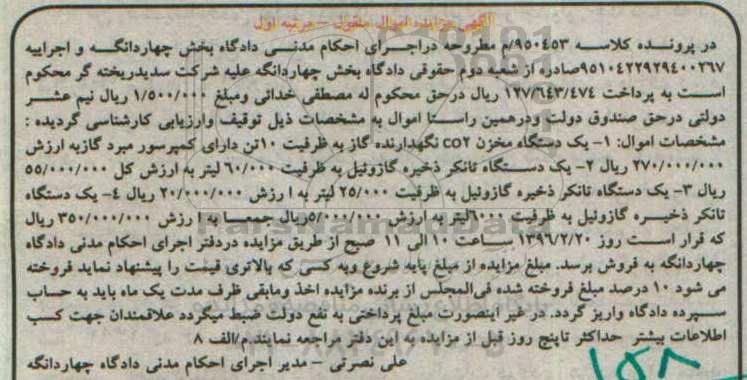 آگهی مزایده اموال منقول – مرتبه اول
در پرونده کلاسه ۹۵۰۴۵۳/م مطروحه دراجرای احکام مدنی دادگاه بخش چهاردانگه و اجراییه
۹۵۱۰۴۲۲۹۲۹۴۰۰۲۶۷صادره از شعبه دوم حقوقی دادگاه بخش چهاردانگه علیه شرکت سدیدریخته گر محکوم
است به پرداخت ۱۲۷/۶۴۳/۴۷۴ ریال درحق محکوم له مصطفی خدائی ومبلغ ۱/۵۰۰/۰۰۰ ریال نیم عشر
دولتی درحق صندوق دولت ودرهمین راستا اموال به مشخصات ذیل توقیف وارزیابی کارشناسی گردیده :
مشخصات اموال: ۱- یک دستگاه مخزن co۲ نگهدارنده گاز به ظرفیت ۱۰تن دارای کمپرسور مبرد گازبه ارزش
۲۷۰/۰۰۰/۰۰۰ ریال ۲- یک دستگاه تانکر ذخیره گازوئیل به ظرفیت ۶۰/۰۰۰ لیتر به ارزش کل ۵۵/۰۰۰/۰۰۰
ریال ۳- یک دستگاه تانکر ذخیره گازوئیل به ظرفیت ۲۵/۰۰۰ لیتر به ا رزش ۲۰/۰۰۰/۰۰۰ ریال ٤- یک دستگاه
تانکر ذخیره گازوئیل به ظرفیت ۶۰۰۰لیتر به ارزش ۵/۰۰۰/۰۰۰ریال جمعا به ا رزش ۳۵۰/۰۰۰/۰۰۰ ریال
که قرار است روز ۱۳۹۶/۲/۲۰ ساعت ۱۰ الی ۱۱ صبح از طریق مزایده دردفتر اجرای احکام مدنی دادگاه
چهاردانگه به فروش برسد. مبلغ مزایده از مبلغ پایه شروع وبه کسی که بالاتری قیمت را پیشنهاد نماید فروخته
می شود ۱۰ درصد مبلغ فروخته شده فی‌المجلس از برنده مزایده اخذ ومابقی ظرف مدت یک ماه باید به حساب
سپرده دادگاه واریز گردد. در غیر اینصورت مبلغ پرداختی به نفع دولت ضبط میگردد علاقمندان جهت کسب
اطلاعات بیشتر حداکثر تاپنج روز قبل از مزایده به این دفتر مراجعه نمایند.م/الف ۸
علی نصرتی – مدیر اجرای احکام مدنی دادگاه چهاردانگه
۱۵۸
ParsNamadData